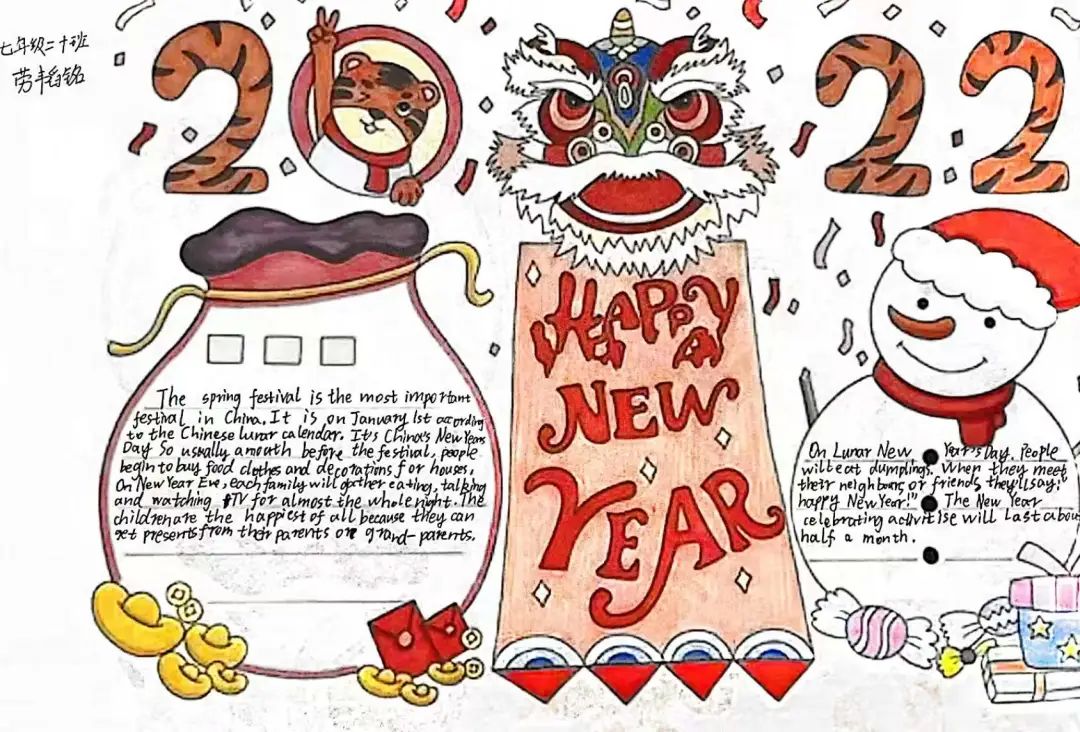 七年级二十班
劳韬铭
2022
HAPPY
NEW
YEAR
The spring festival is the most important
festival in China. It is on January 1st according
to the Chinese lunar calendar. It's China's New Years
Day So usually a mouth before the festival, people
begin to buy food clothes and decorations for houses.
On New Year Eve, each family will gather eating, talking
and watching TV for almost the whole night. The
children are the happiest of all because they can
get presents from their parents or grand-parents.
On Lunar New Year's Day. People
will eat dumplings. When they meet
their neighburs or friends, they'll say:"
happy New Year!" The New Year
celebrating activitise will last abou
half a month.